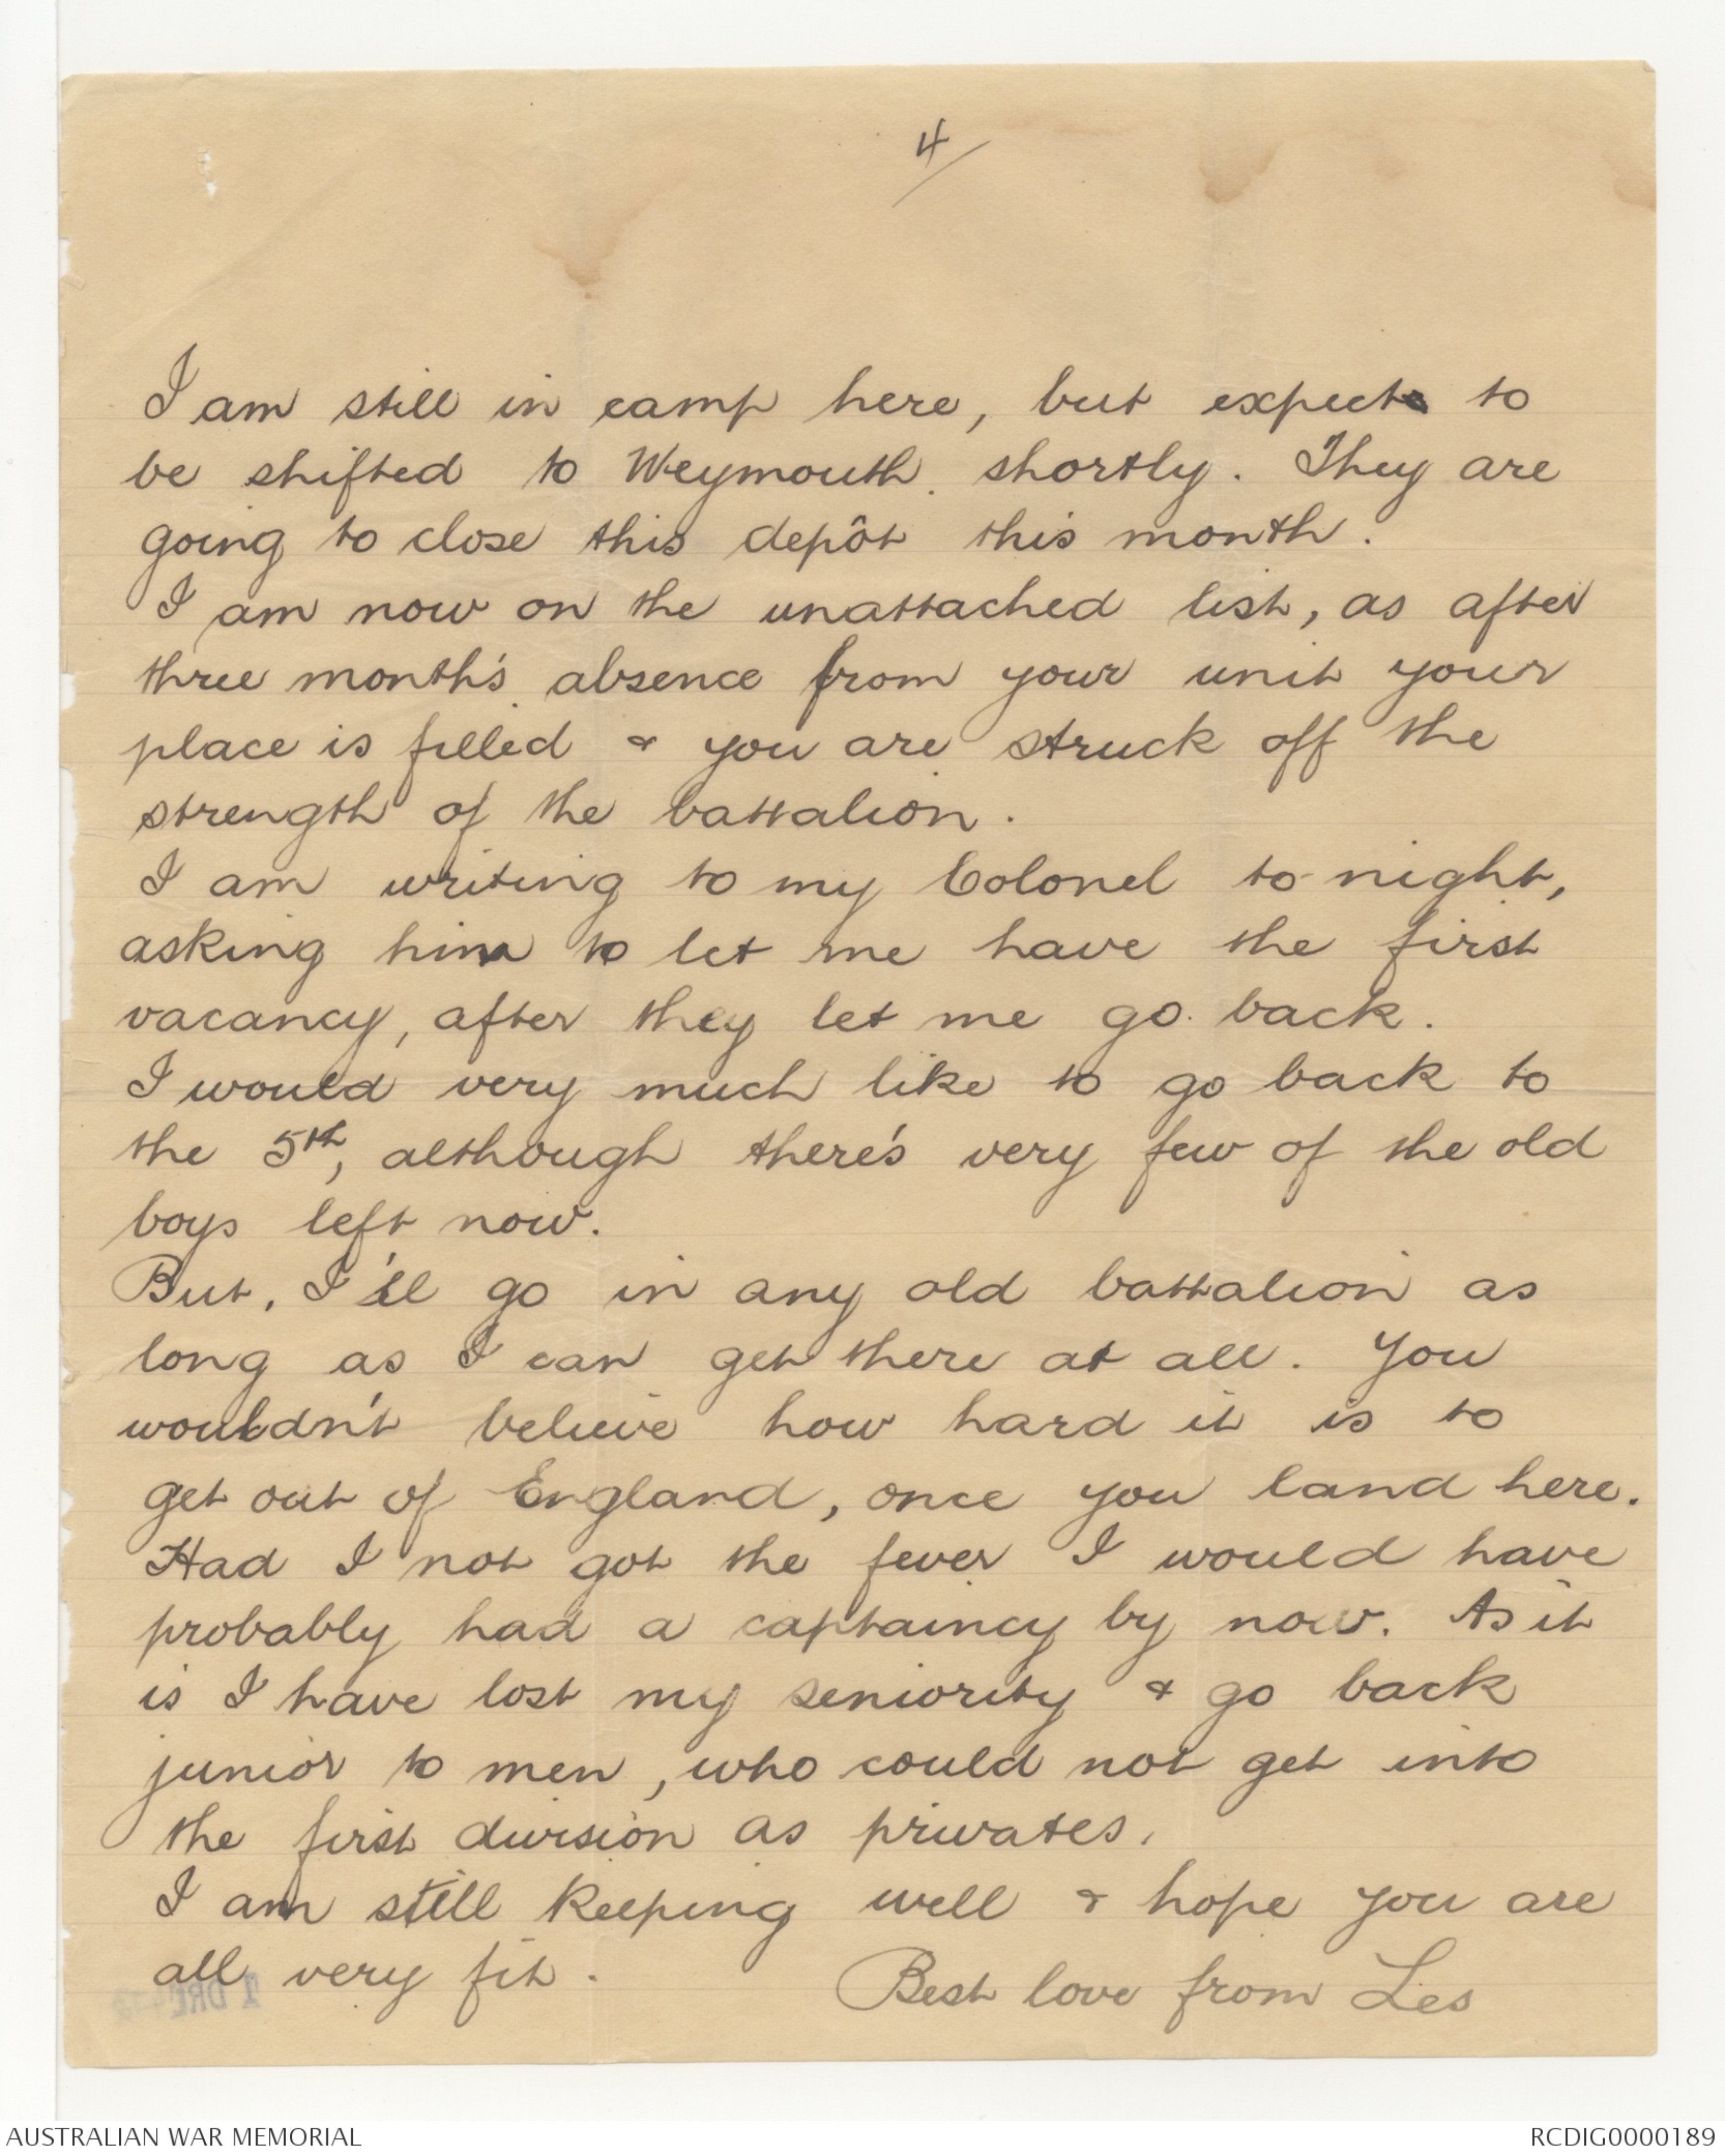 4/
I am still in camp here, but expect to
be shifted to Weymouth shortly. They are
going to close this depôt this month.
I am now on the unattached list, as after
three month's absence from your unit your
place is filled & you are struck off the
strength of the battalion.
I am writing to my Colonel to-night,
asking him to let me have the first
vacancy, after they let me go back.
I would very much like to go back to
the 5th, although there's very few of the old
boys left now.
But, I'll go in any old battalion as
long as I can get there at all. You
wouldn't believe how hard it is to
get out of England, once you land here.
Had I not got the fever I would have
probably had a captaincy by now. As it
is I have lost my seniority & go back
junior to men, who could not get into
the first division as privates.
I am still keeping well & hope you are
all very fit.
Best love from Les
AUSTRALIAN WAR MEMORIAL
RCDIG0000189